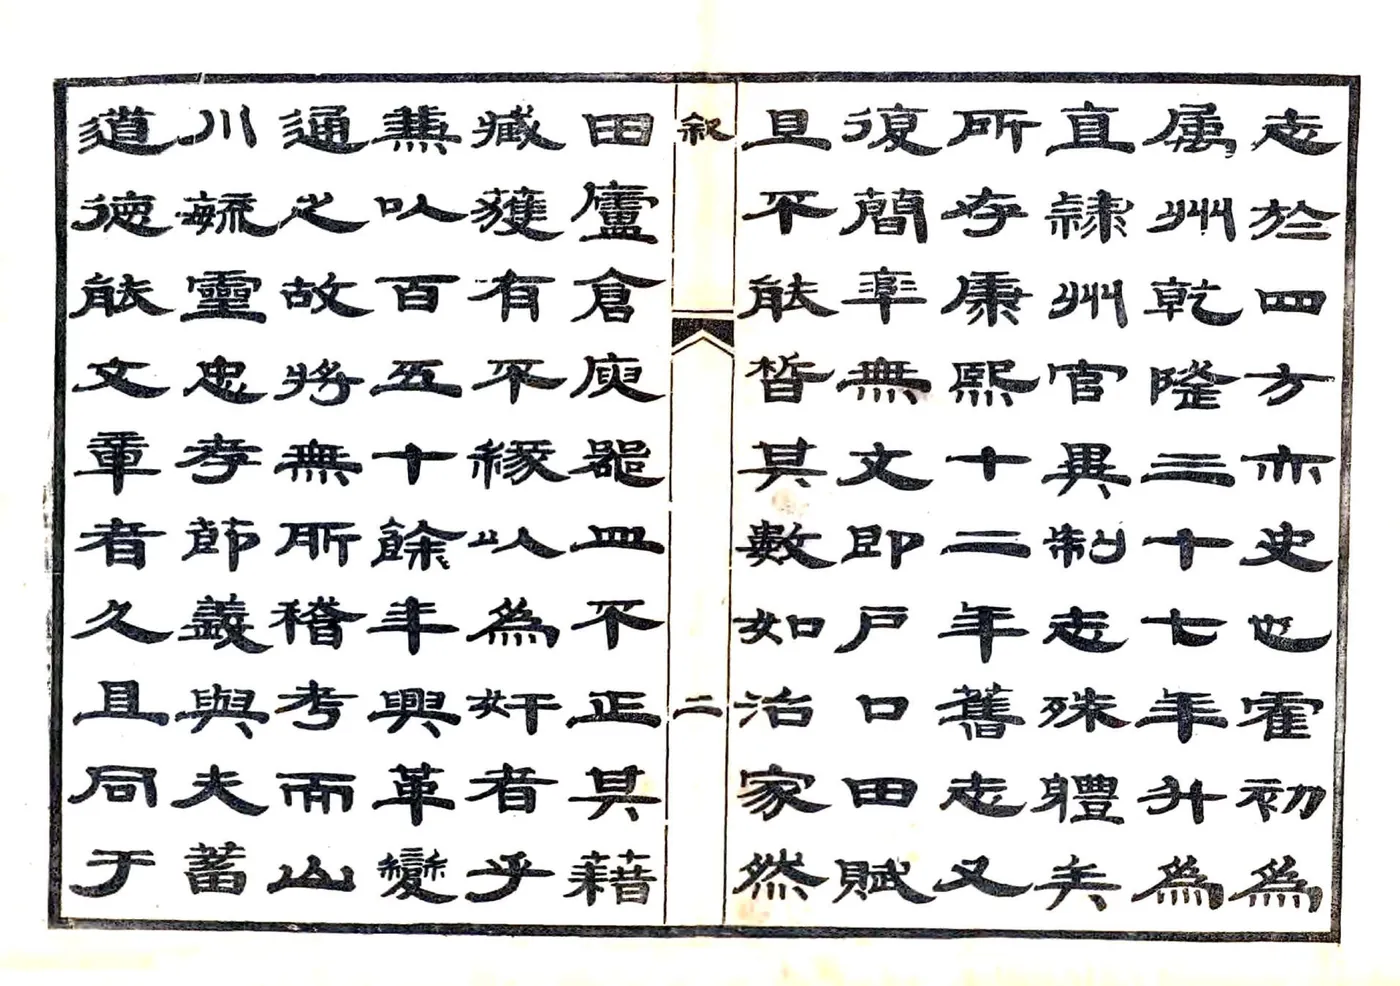 志於四方亦史也霍初為
屬州乾隆三十七年升為
直隸州官異制志殊體矣
所存康熙十二年舊志又
復簡率無文即戶口田賦
且不能晳其數如治家然
叙
二
田廬倉庾器皿不正其藉
臧獲有不緣以為奸者乎
兼以百五十餘年興革變
通之故將無所稽考而山
川毓靈忠孝節義與夫蓄
道德能文章者久且同于